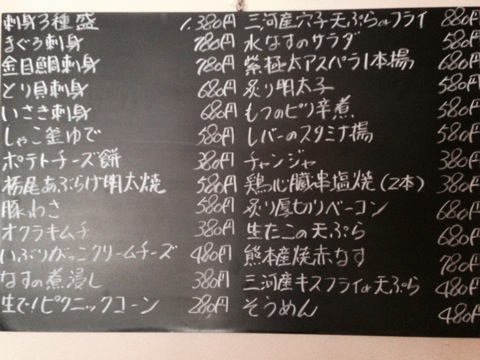 刺身3種盛 1.380円
まぐろ刺身 780円
金目鯛刺身 780円
とり貝刺身 680円
いさき刺身 680円
しゃこ釜ゆで 580円
ポテトチーズ餅 380円
栃尾あぶらげ明太焼 580円
豚わさ 580円
オクラキムチ 380円
いぶりがっこクリームチーズ 480円
なすの煮浸し 380円
生で!ピクニックコーン 280円
三河産穴子天ぷらorフライ 880円
水なすのサラダ 580円
紫極太アスパラ1本揚 680円
炙り明太子 680円
もつのピリ辛煮 580円
レバーのスタミナ揚 580円
チャンジャ 380円
鶏心臓串塩焼(2本) 380円
炙り厚切りベーコン 680円
生たこの天ぷら 680円
熊本産焼赤なす 780円
三河産キスフライor天ぷら 480円
そうめん 480円